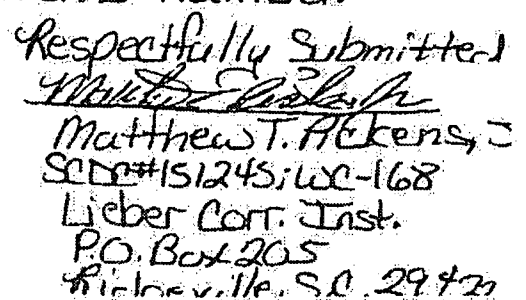 Respectfully Submitted
Matthew T. Ackens, J
SCDC#151245; WC-168
Lieber Corr. Inst.
P.O. Box 205
Ridgeville, S.C. 294